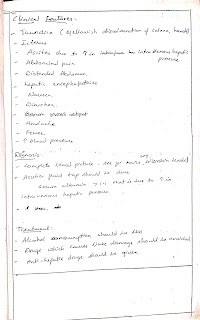 Clinical Features:-
- Jaundice (yellowish discolouration of sclera, hands)
- Icterus
- Ascites due to ↑ in intrahepatic venous hepatic pressure
- Abdominal pain
- Distended Abdomen
- hepatic encephalopathies
- Nausea.
- Diarrhea.
- Headache
- Fever
- ↑ blood pressure
Diagnosis:-
- Complete blood picture.
- Ascitic fluid tap should be done
serum albumin >1.1 that is due to ↑ in
intravenous hepatic pressure
Treatment:-
- Alcohol consumption should be less
- Drugs which causes liver damage should be avoided
- Anti-hepatic drugs should be given